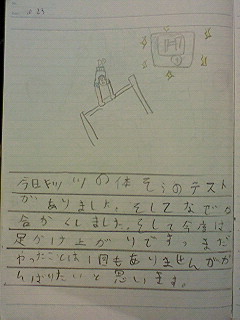 23
今日 の体そうのテスト
がありました。そして
合かくしました。そして今度は
足かけ上がりです。まだ
やったことは1回もありませんがが
んばりたいと思います。